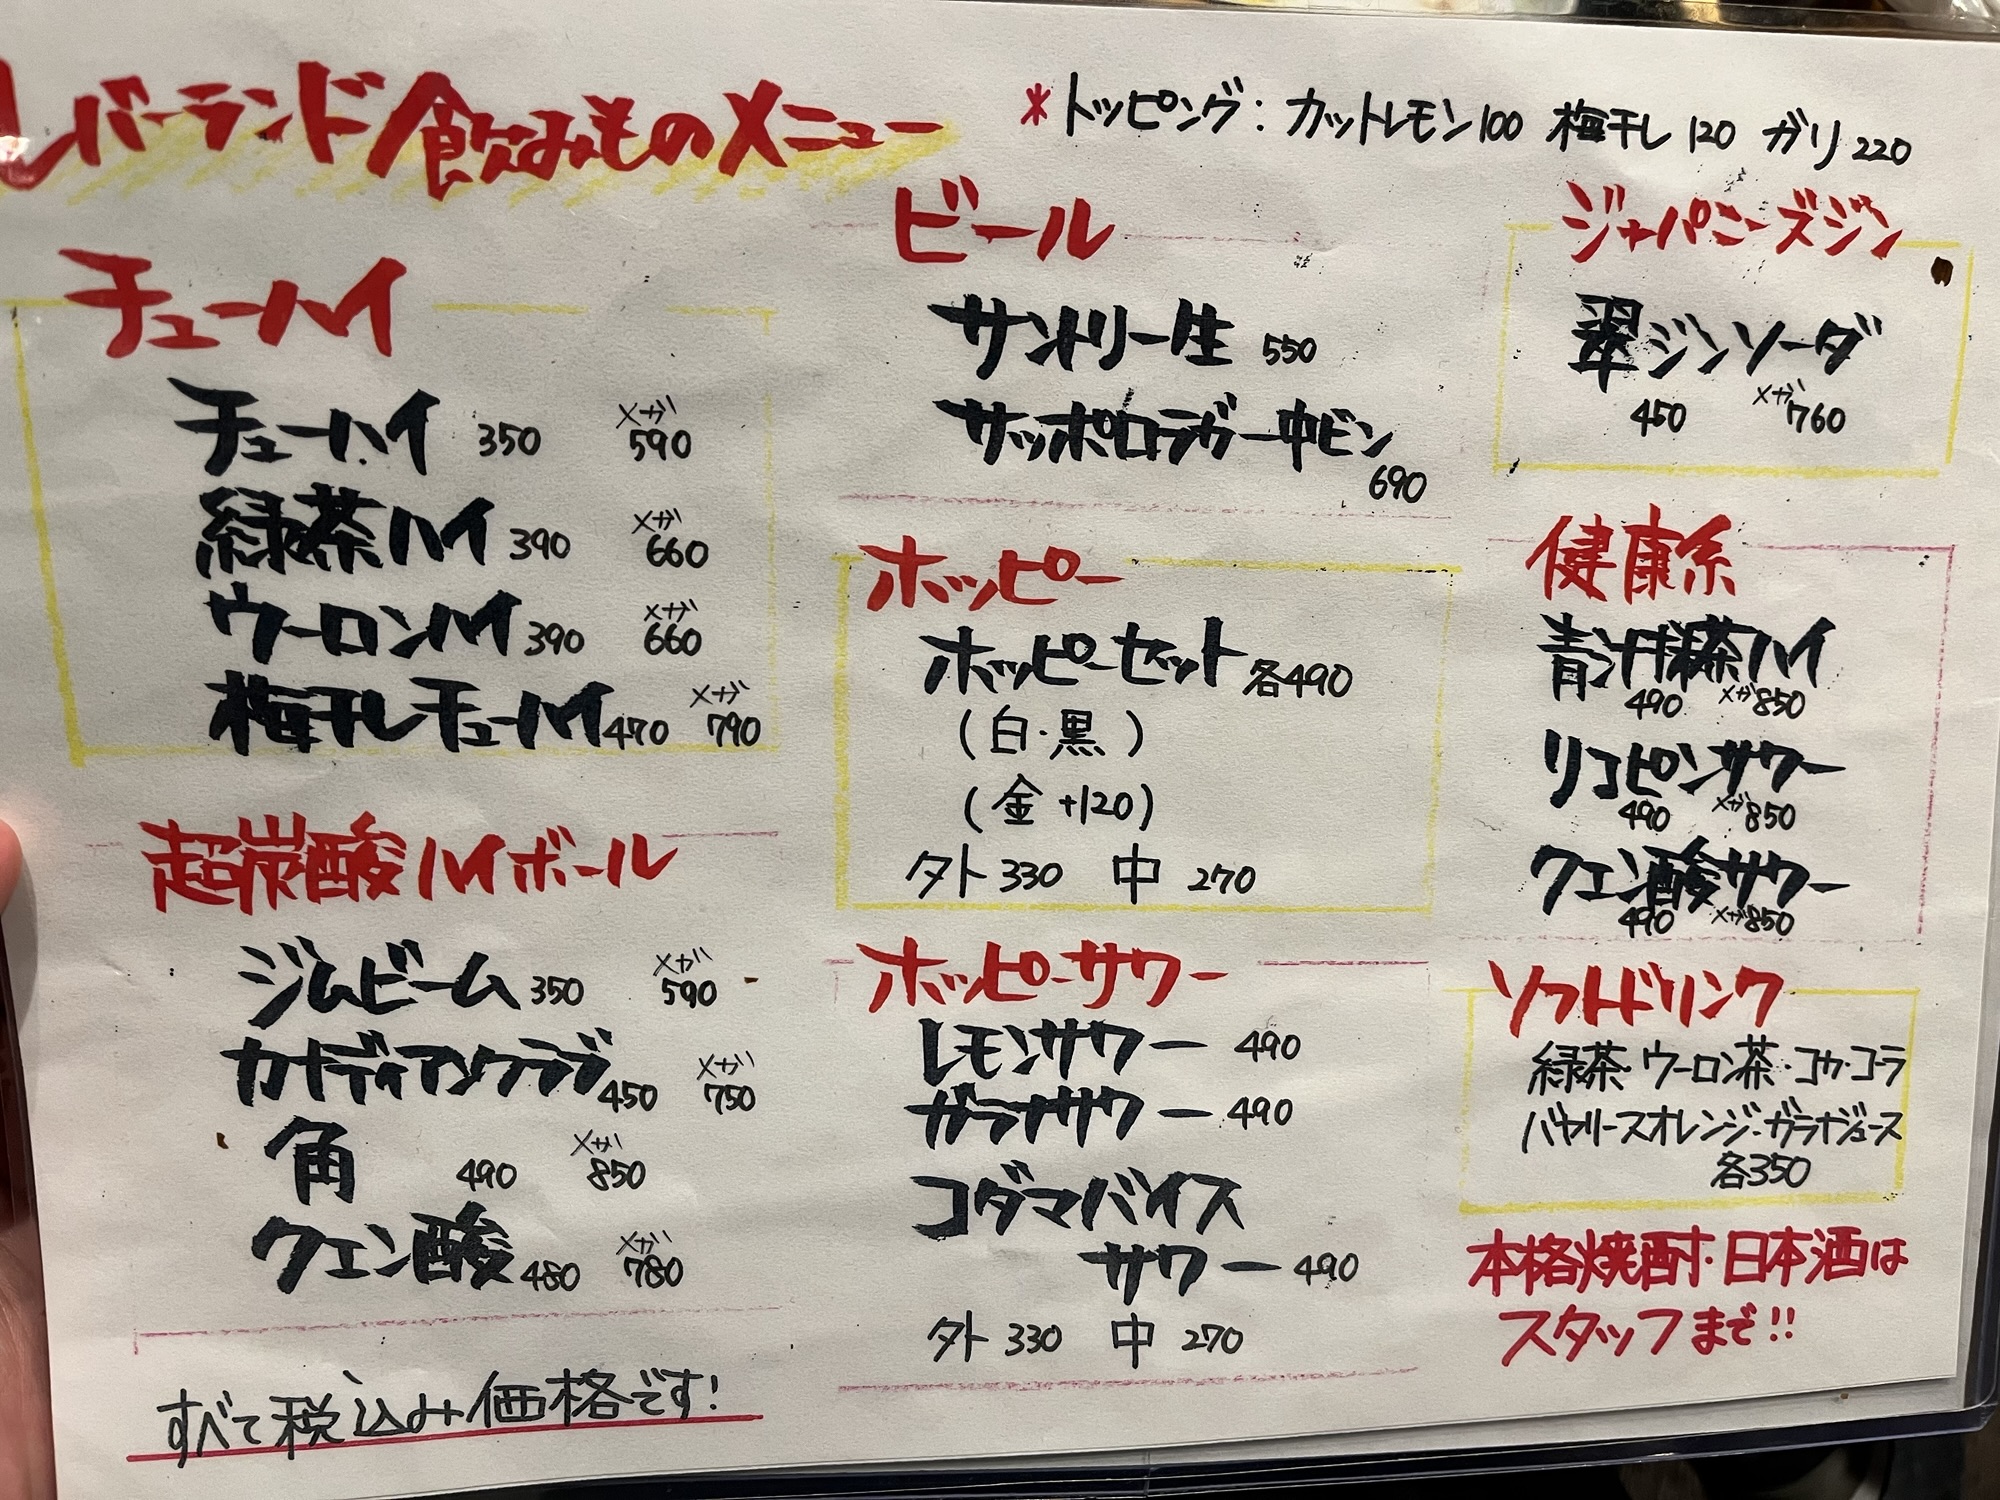 レバーランド飲みものメニュー
*トッピング：カットレモン100 梅干し120 ガリ220
チューハイ
チューハイ 350 メガ590
緑茶ハイ 390 メガ660
ウーロンハイ 390 メガ660
梅干しチューハイ 470 メガ790
超炭酸ハイボール
ジムビーム 350 メガ590
カナディアンクラブ 450 メガ750
角 490 メガ850
クエン酸 480 メガ780
すべて税込み価格です!
ビール
サントリー生 550
サッポロラガー中ビン
690
ホッピー
ホッピーセット 各490
(白・黒)
(金+120)
外330 中270
ホッピーサワー
レモンサワー 490
ガラナサワー 490
コダマバイス
サワー 490
外330 中270
ジャパニーズジン
翠ジンソーダ
450 メガ760
健康系
青汁緑茶ハイ
490 メガ850
リコピンサワー
490 メガ850
クエン酸サワー
490 メガ850
ソフトドリンク
緑茶・ウーロン茶・コカ・コーラ
バヤリースオレンジ・ガラナジュース
各350
本格焼酎・日本酒は
スタッフまで!!